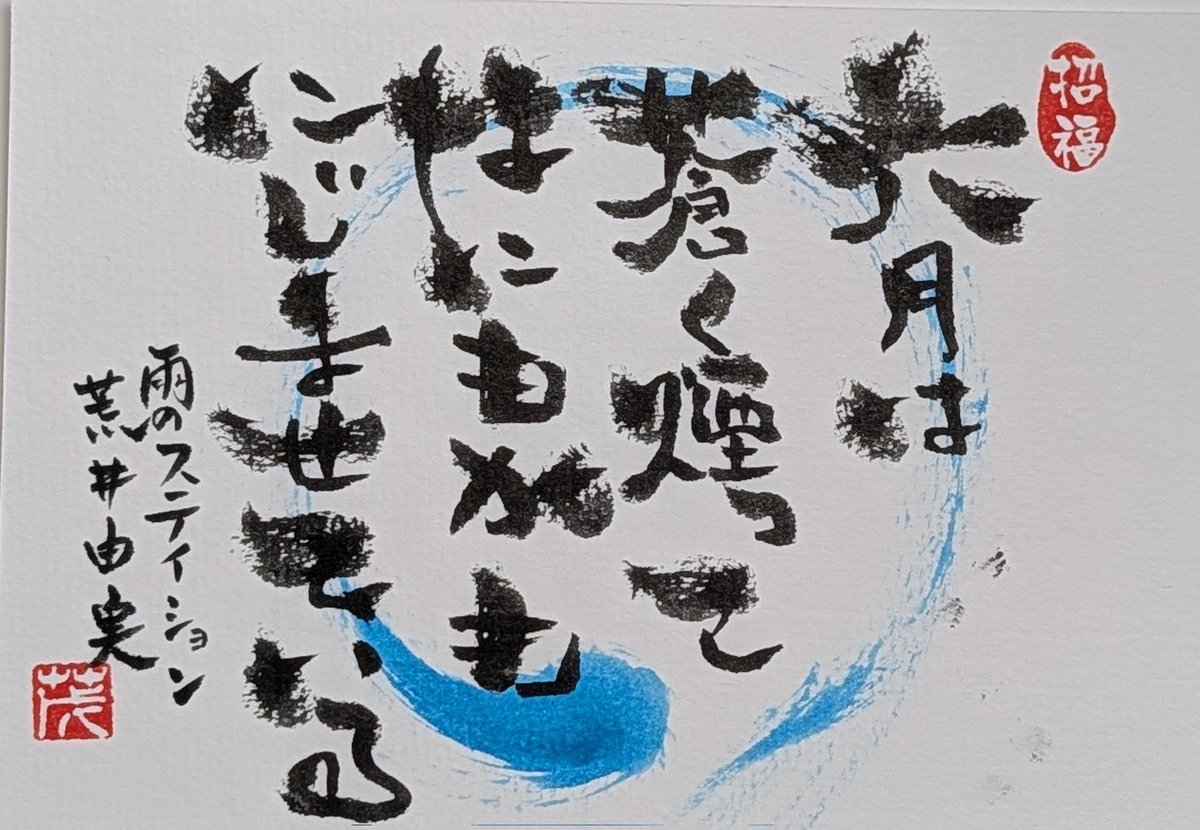 招福
六月は
蒼く煙って
なにもかも
にじませている
雨のステイション
荒井由実
茂